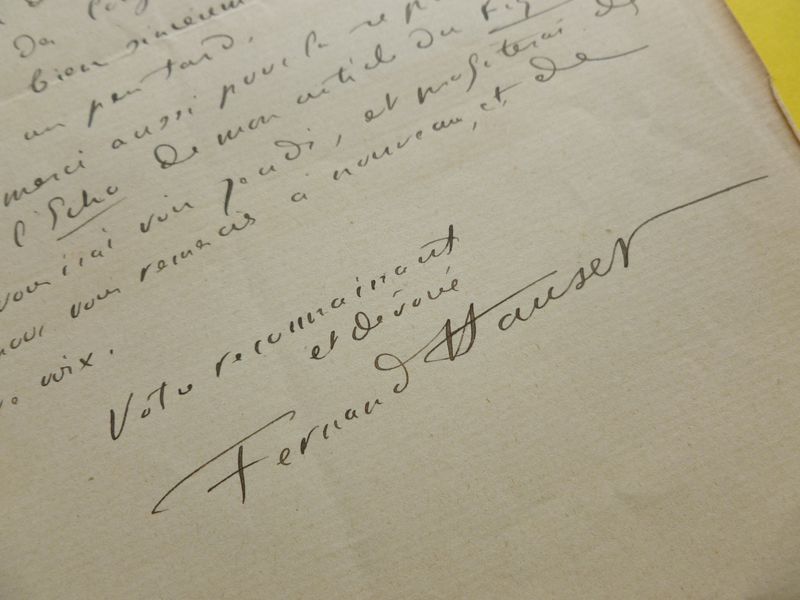 bien sincèrem
un peu tard.
merci aussi pour la rep
l'Echo de mon article du Fig
vous irai voir jeudi, et profiterai de
vous remercier à nouveau, et de
voix.
Votre reconnaissant
et dévoué
Fernand Hauser